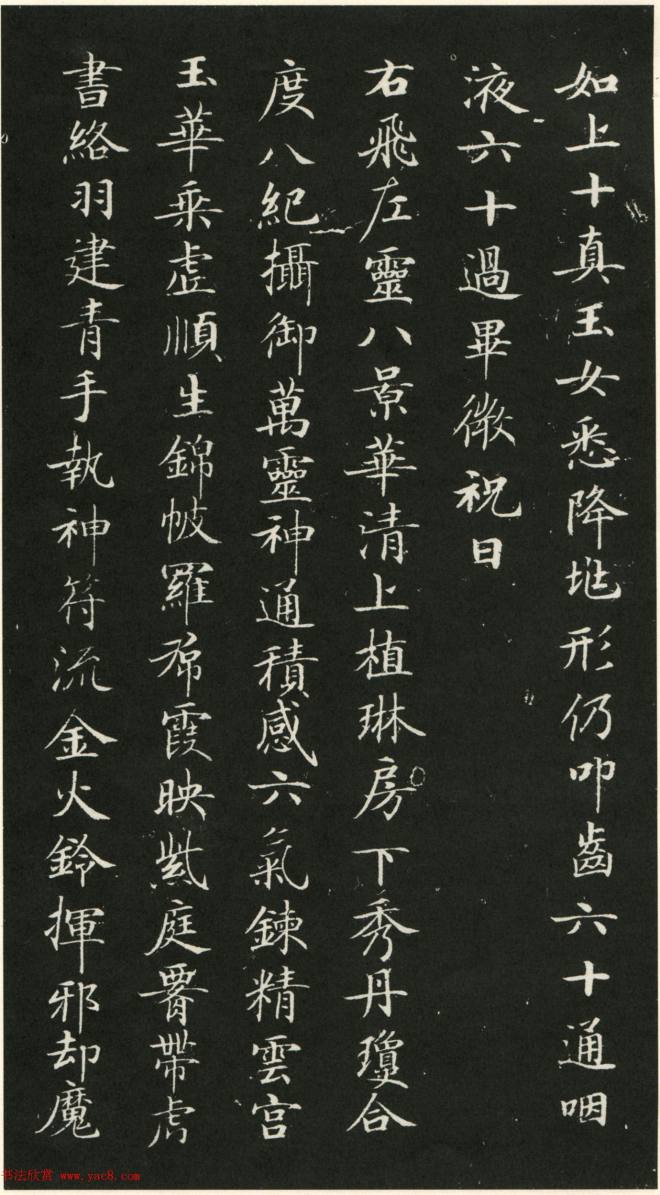 如上十真玉女悉降形仍叩齒六十通咽
液六十過畢微祝曰
右飛左靈八景華清上植琳房下秀丹瓊合
度八紀攝御萬靈神通積感六氣鍊精雲宮
玉華乘虛順生錦帔羅帬霞映紫庭腎帶虎
書絡羽建青手執神符流金火鈴揮邪却魔
书法欣赏 www.yac8.com